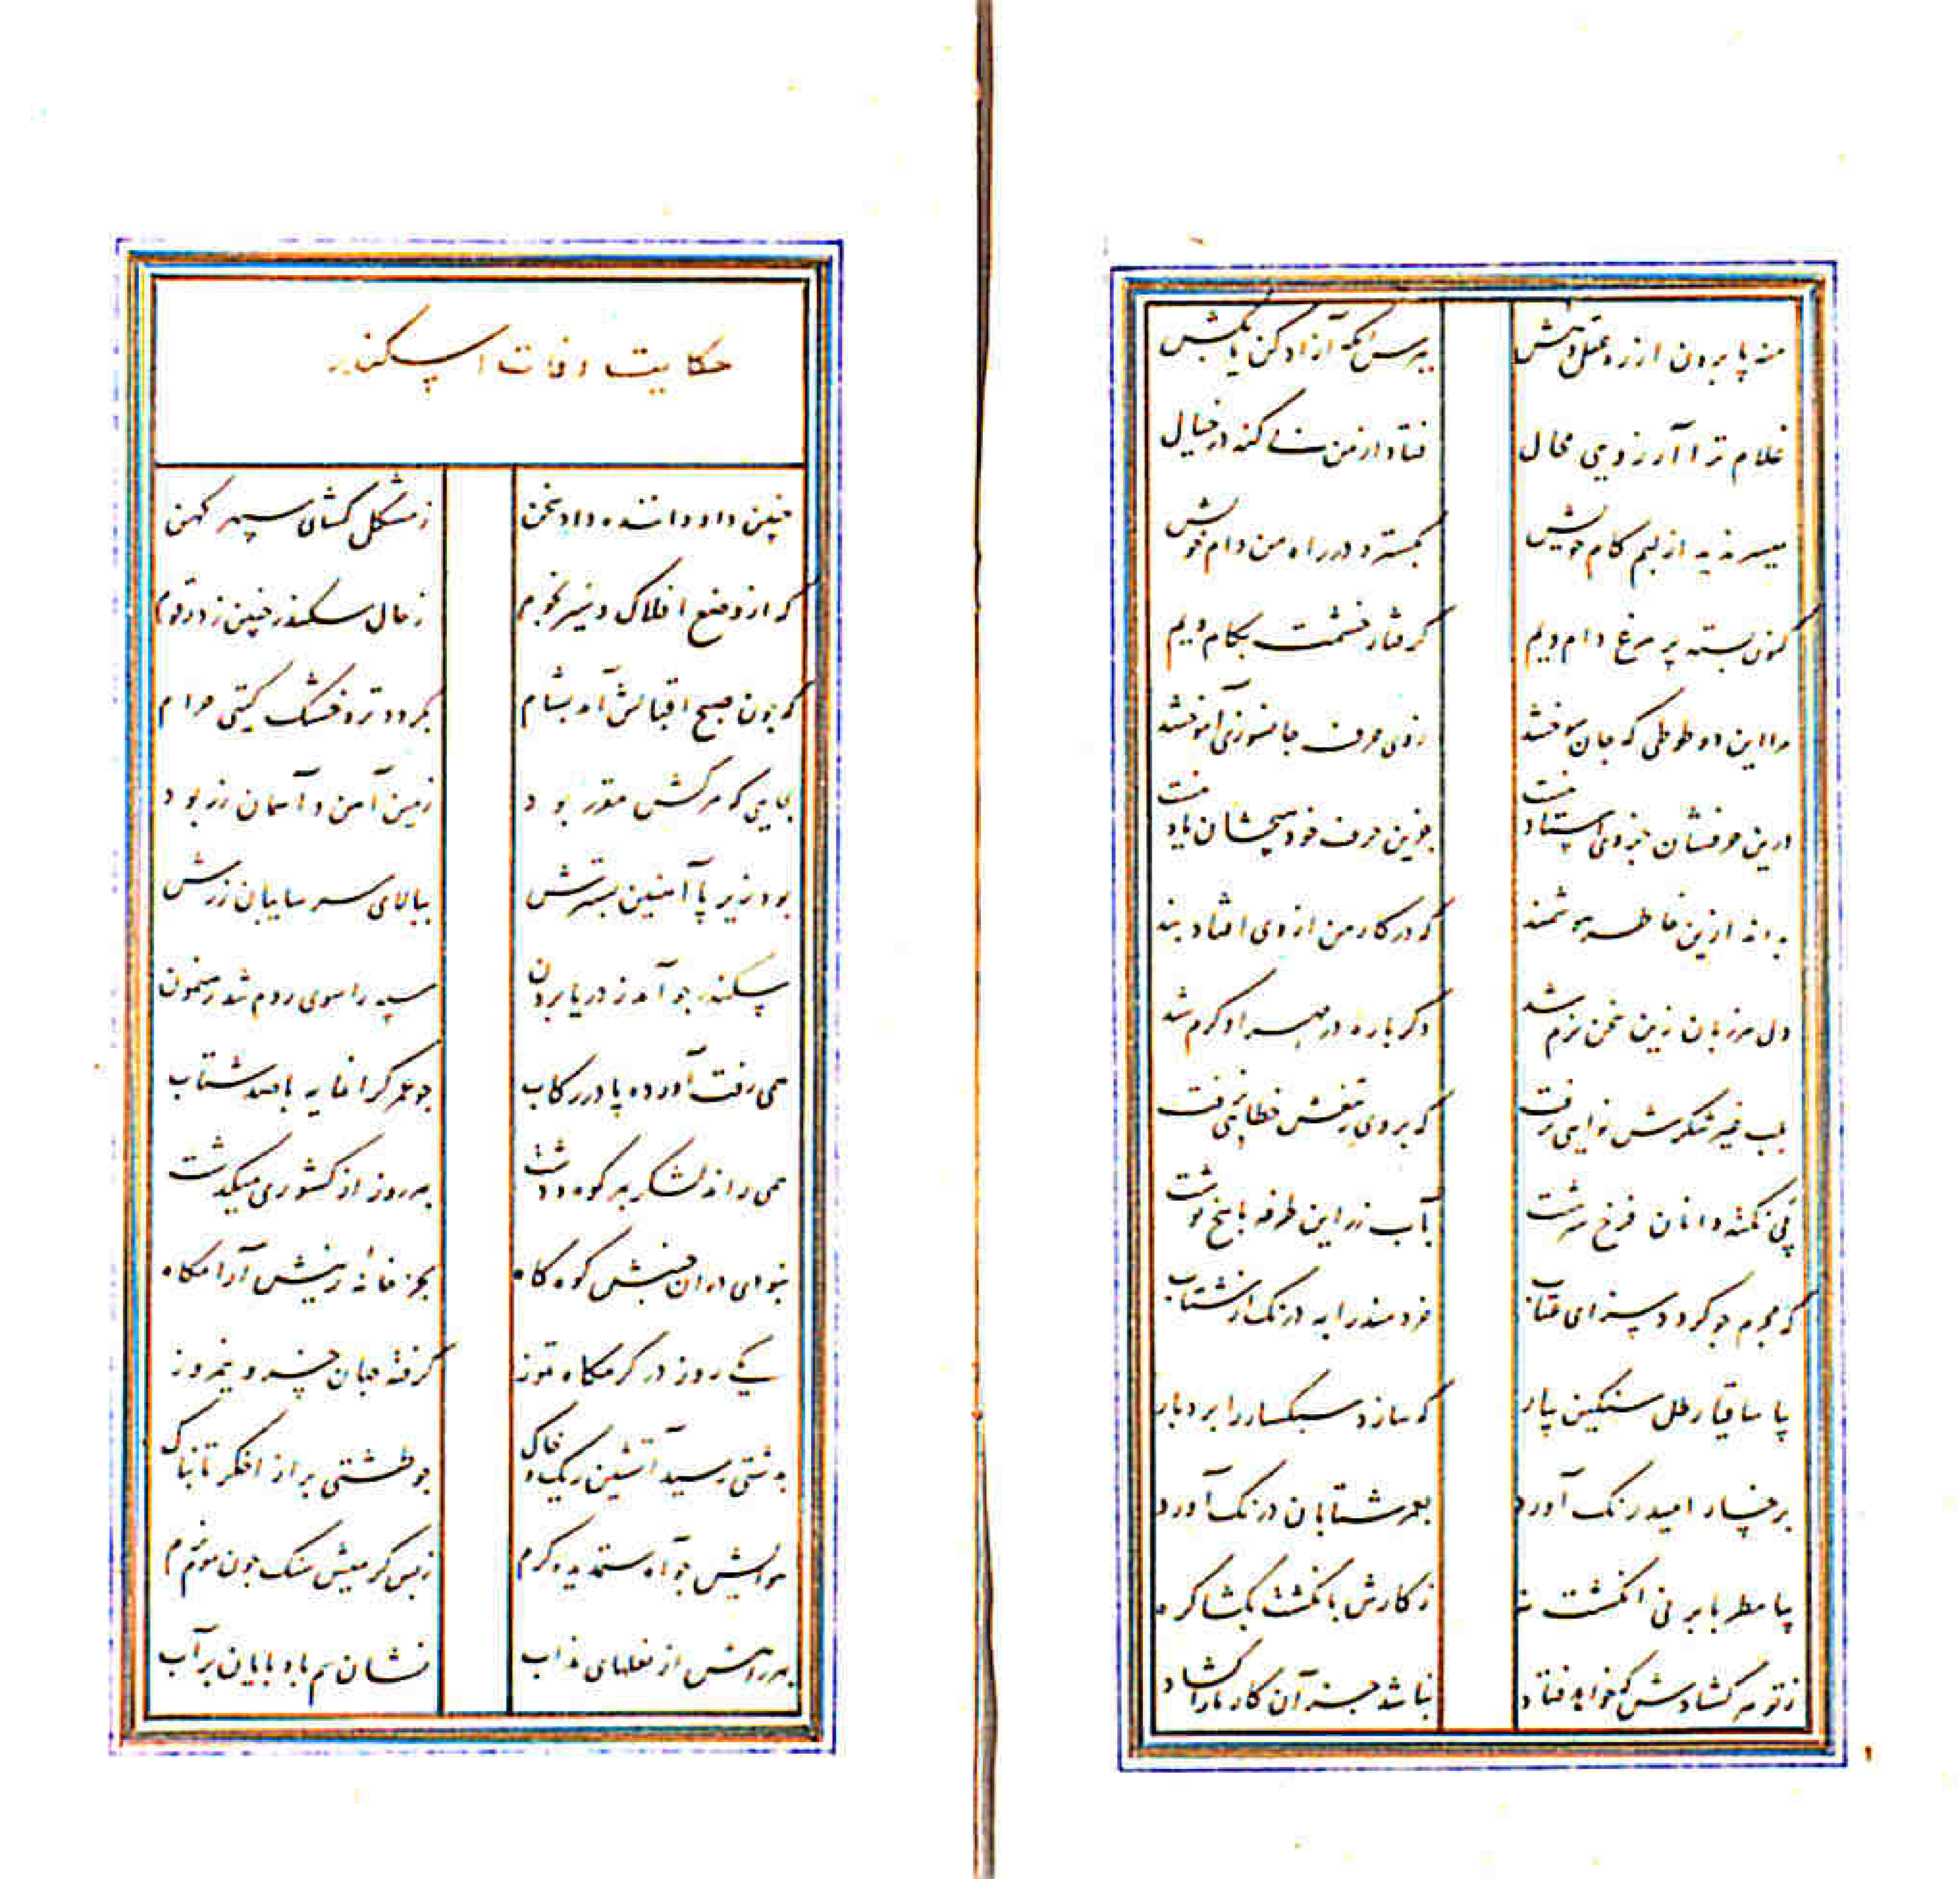 منه پا برون از ره عقل و هش بپرس آنگه آزاد کن یا بکش
غلام ترا آرزویی محال فتاد از من کند در خیال
میسر ندید از لبم کام خویش بگسترد در راه من دام خویش
کنون بسته پر مرغ دام ویم گرفتار خشمت بکام ویم
مرا این دو طوطی که جان سوختند ز وی حرف جانسوزی آموختند
درین حرفشان جز وی استاد نیست بجز این حرف خود هیچشان یاد نیست
بداند ازین خاطر هوشمند که در کار من از وی افتاد بند
دل مرزبان زین سخن نرم شد دگر باره در مهر او گرم شد
بلب غیر شکرش نوایی نرفت که بر وی ز تیغش خطایی نرفت
پی نکته دانان فرخ سرشت بآب زر این طرفه پاسخ نوشت
که مجرم چو گردد سزای عتاب خردمند را به درنگ از شتاب
بیا ساقیا رطل سنگین بیار که سازد سبکسار را بردبار
برخسار امید رنگ آورد بعمر شتابان درنگ آورد
بیا مطربا بر نی انگشت نه ز کارش بانگشت بگشا گره
ز تو هر گشادش که خواهد فتاد نباشد جز آن کار ما را گشاد
حکایت وفات اسکندر
چنین داد داننده داد سخن ز مشکل گشای سپهر کهن
که از وضع افلاک و سیر نجوم ز حال سکندر چنین زد رقوم
که چون صبح اقبالش آید بشام بگردد تر و خشک گیتی حرام
بجایی که مرگش مقرر بود زمین آهن و آسمان زر بود
بود زیر پا آهنین بسترش ببالای سر سایبان زرش
سکندر چو آمد ز دریا برون سپه را سوی روم شد رهنمون
همی رفت آورده پا در رکاب چو عمر گرانمایه با صد شتاب
همی راند لشکر بهر کوه و دشت بهر روز از کشوری میگذشت
جنبش کوه کاه بجز خانه زینش آرامگاه
یکی روز در گرمگاه تموز گرفته جهان خسرو نیمروز
بدشتی رسید آتشین ریگ و خاک چو طشتی پر از اخگر تابناک
هوایش چو آه ستمدیده گرم ز بس گرمیش سنگ چون موم نرم
بهر راهش از نعلهای مذاب نشان سم بادپایان بر آب